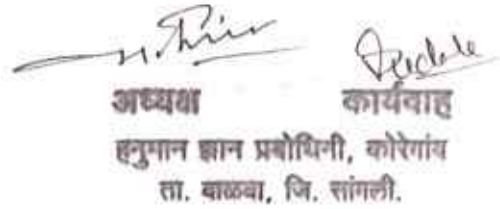 अध्यक्ष कार्यवाह
हनुमान ज्ञान प्रबोधिनी, कोरेगांव
ता. वाळवा, जि. सांगली.